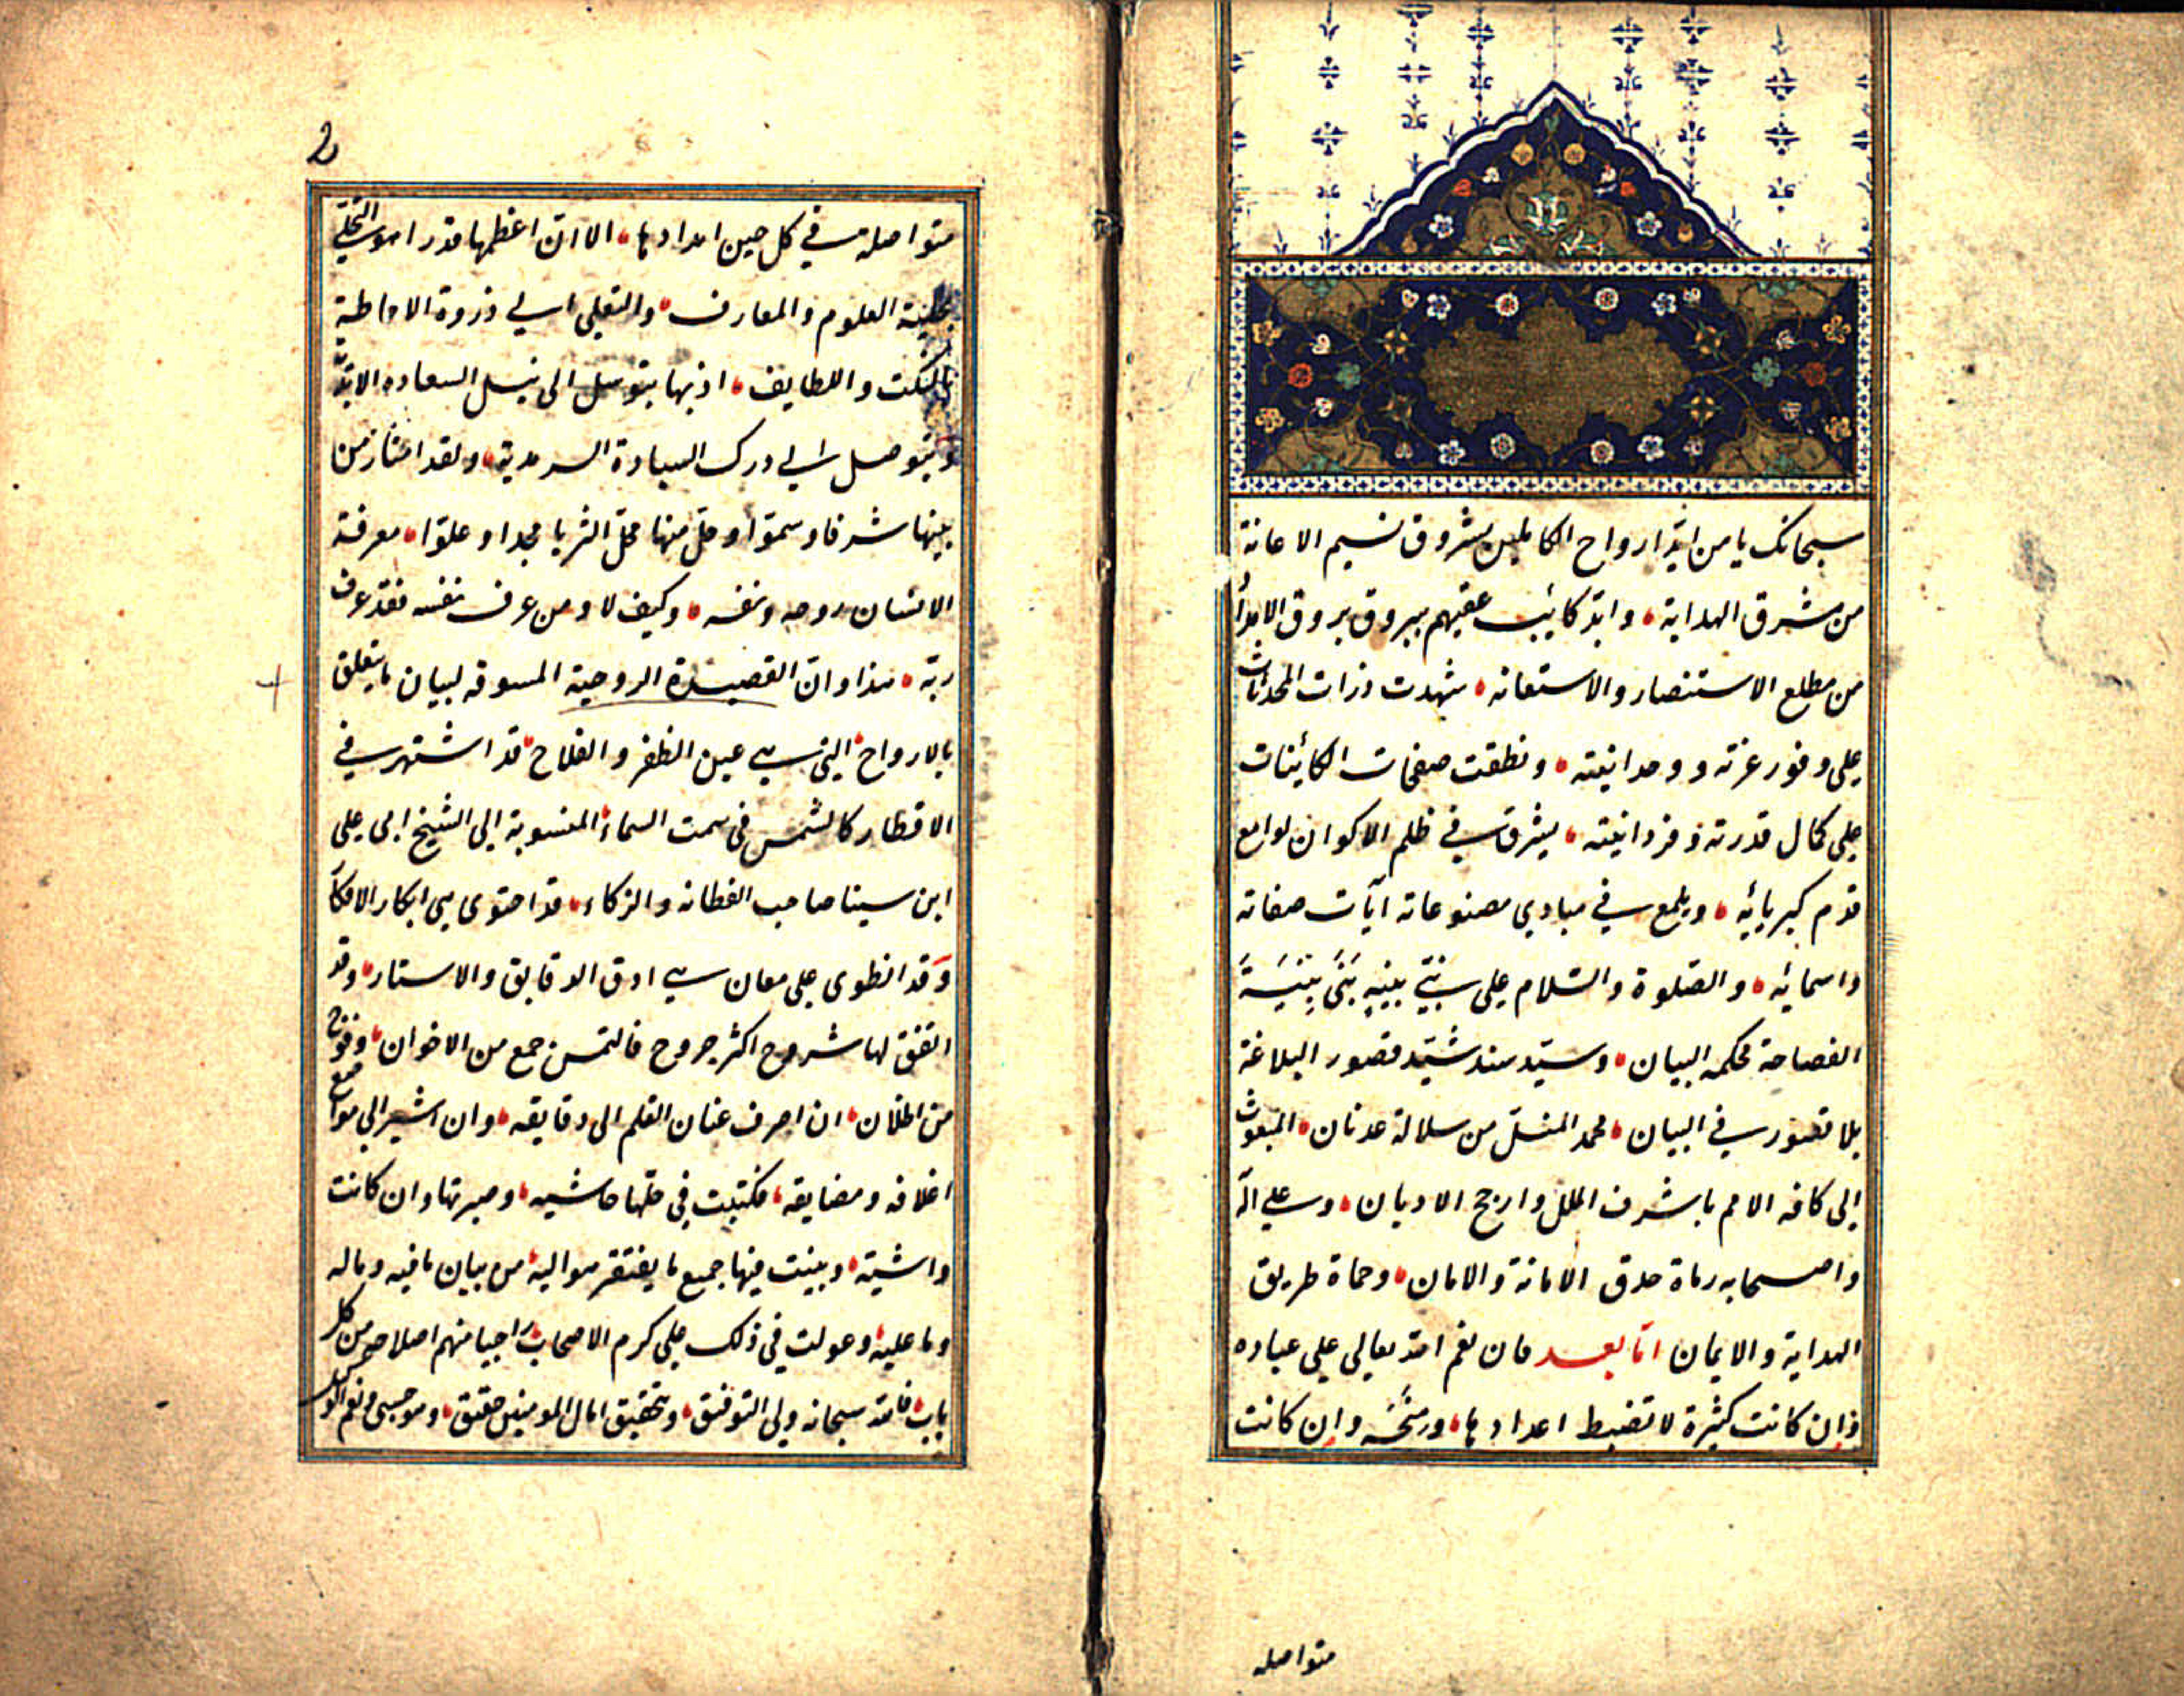 سبحانك يا من ايّد ارواح الكاملين بشروق نسيم الاعانة
من مشرق الهداية وابّد كائب عقيهم ببروق بروق الابدأ
من مطلع الاستنصار والاستعانه شهدت ذرات المحدثات
على وفور عزته ووحدانيته ونطقت صفحات الكائنات
على كمال قدرته وفردانيته يشرق في ظلم الاكوان لوامع
قدم كبريائه ويلمع في مبادي مصنوعاته آيات صفاته
واسمائه والصّلوة والسّلام على نبيّ بنيه بَنَى بِنْيَةَ
الفصاحة محكمه البيان وسيّد سند شيّد قصور البلاغة
بلا قصور في البيان محمد المنسلّ من سلالة عدنان المبعوث
الى كافه الامم باشرف الملل وارجح الاديان وعلى آله
واصحابه رماة حدق الامانة والامان وحماة طريق
الهداية والايمان امّا بعد فان نعم الله تعالى على عباده
وان كانت كثيرة لا تضبط اعدادها ومنحه وان كانت
متواصله
2
متواصلة في كل حين امدادها الا انّ اعظمها قدرا هو التحلّي
بحلية العلوم والمعارف والتعلي الي ذروة الاحاطة
بالنكت واللطايف اذ بها يتوسل الى نيل السعاده الابديّة
ويتوصل الي درك السيادة السرمدية ولقد امتاز من
بينها شرفا وسموّا وحلّ منها محلّ الثريا مجدا وعلوّا معرفة
الانسان روحه ونفسه وكيف لا ومن عرف نفسه فقد عرف
ربّه هذا وان القصيدة الروحية المسوقه لبيان ما يتعلق
بالارواح التي هي عين الظفر والفلاح قد اشتهر في
الاقطار كالشمس في سمت السماء المنسوبة الى الشيخ ابي على
ابن سينا صاحب الفطانه والزكاء قد احتوى هي ابكار الافكا
وقد انطوى على معان هي ادق الدقايق والاستار وقد
اتفق لها شروح اكثر جروح فالتمس جمع من الاخوان وفوج
من الخلان ان اصرف عنان القلم الى دقايقه وان اشير الي مواضع
اغلاقه ومضايقه فكتبت في حلّها حاشيه وصيرتها وان كانت
واشية وبينت فيها جميع ما يفتقر هو اليه من بيان ما فيه وماله
وما عليه وعولت في ذلك على كرم الاصحاب راجيا منهم اصلاحه من كل
باب فالله سبحانه ولى التوفيق وبتحقيق امال المومنين حقيق وهو حسبي ونعم الوكيل